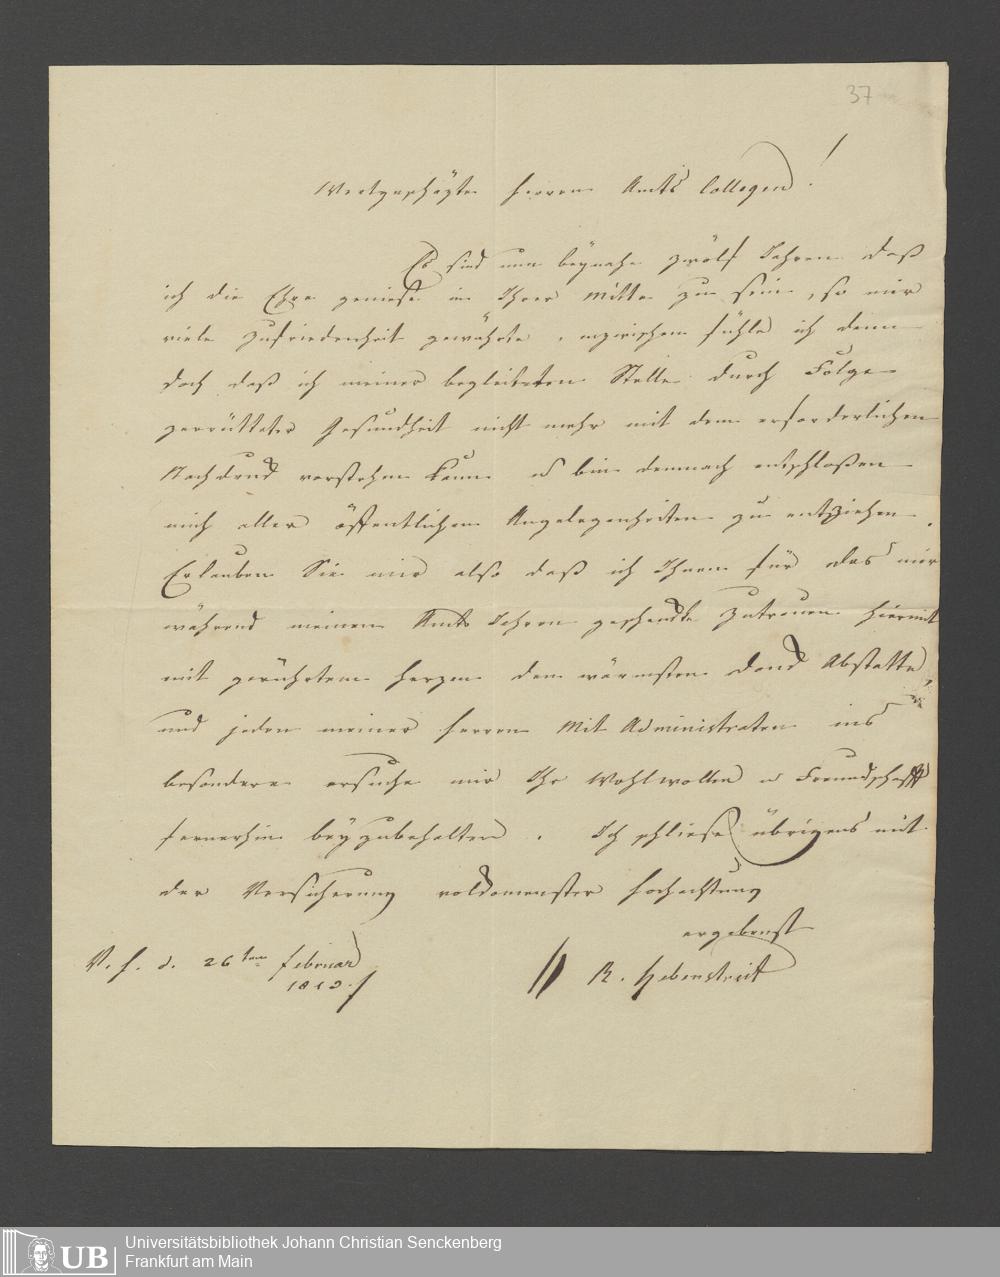 37
Wertgeschäzte Herren Amts Collegen!
Es sind nun beynahe zwölf Jahren daß
ich die Ehre geniese in Ihrer Mitte zu sein, so mir
viele Zufriedenheit gewährte, inzwischen fühle ich denn
doch daß ich meiner begleiteten Stelle durch Folge
zerrütteter Gesundheit nicht mehr mit dem erforderlichen
Nachdruck vorstehen kann u bin demnach entschloßen
mich aller öffentlichen Angelegenheiten zu entziehen.
Erlauben Sie mir also daß ich Ihnen für das mir
während meinen Amts Jahren geschenkte Zutrauen hiermit
mit gerührtem Herzen den wärmsten Dank Abstatte,
und jeden meiner Herren Mit Administraten ins
besondere ersuche mir Ihr Wohlwollen u Freundschafft
fernerhin beyzubehalten. Ich schliese übrigens mit
der Versicherung vollkomenster Hochachtung
ergebenst
V. H. d. 26ten Februar
R. Hebenstreit
UB
Universitätsbibliothek Johann Christian Senckenberg
Frankfurt am Main